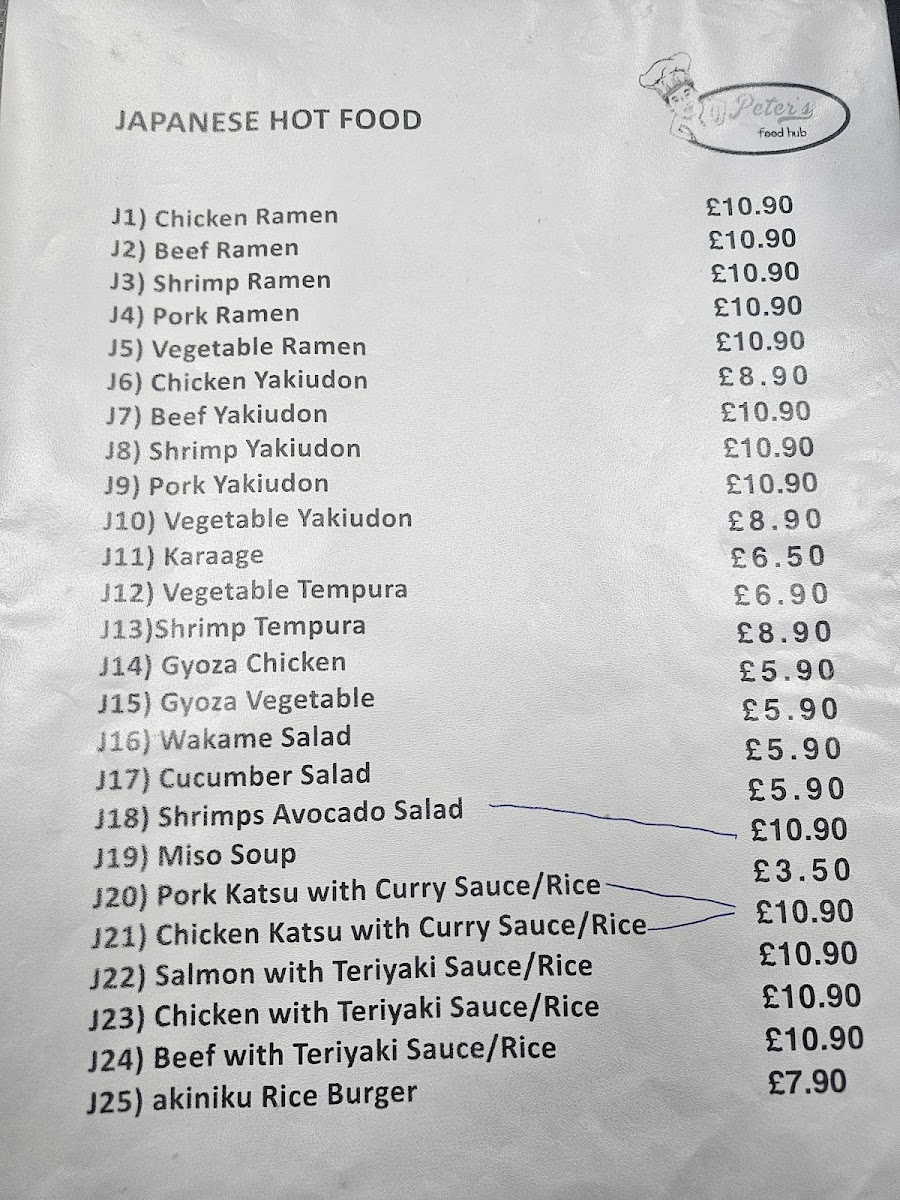 JAPANESE HOT FOOD
Peter's
food hub
J1) Chicken Ramen £10.90
J2) Beef Ramen £10.90
J3) Shrimp Ramen £10.90
J4) Pork Ramen £10.90
J5) Vegetable Ramen £10.90
J6) Chicken Yakiudon £8.90
J7) Beef Yakiudon £10.90
J8) Shrimp Yakiudon £10.90
J9) Pork Yakiudon £10.90
J10) Vegetable Yakiudon £8.90
J11) Karaage £6.50
J12) Vegetable Tempura £6.90
J13)Shrimp Tempura £8.90
J14) Gyoza Chicken £5.90
J15) Gyoza Vegetable £5.90
J16) Wakame Salad £5.90
J17) Cucumber Salad £5.90
J18) Shrimps Avocado Salad £10.90
J19) Miso Soup £3.50
J20) Pork Katsu with Curry Sauce/Rice £10.90
J21) Chicken Katsu with Curry Sauce/Rice
J22) Salmon with Teriyaki Sauce/Rice £10.90
J23) Chicken with Teriyaki Sauce/Rice £10.90
J24) Beef with Teriyaki Sauce/Rice £10.90
J25) akiniku Rice Burger £7.90